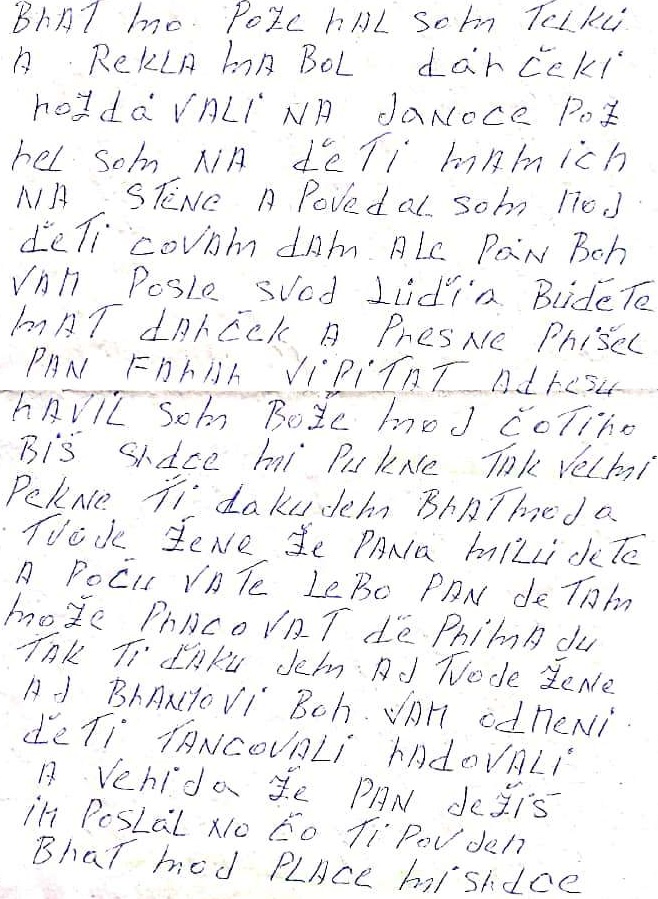 BrAT mo PoZe rAL som TeLKu
A ReKLA mA BoL dárčeki
rozdá VALi NA JANoce Poz
rel som NA ďeTi mAmich
NA STĚNe A PoVedAL som Moj
ďeTi čoVAm dAm ALe PAN Boh
VAM PosLe sVoJ Luďia Buďete
mAT dArček A PresNe Prišel
PAN FArAr ViPiTAT Adresu
rAViL som Bože moj čoTiho
Biš srdce mi PukNe TAK VeLmi
PekNe Ti ďakujem BrAT moj a
TVoje ŽeNe že PANa miLuJeTe
A PočuVATe LeBo PAN jeTAm
može PrAcoVAT ďe PrimAJu
TAK Ti ďAkuJem AJ TVoje ženе
AJ BrANYoVi Boh VAM odMeNi
ďeTi TANcoVALi rAdoVALi
A VeriJa že PAN JežiŠ
im PosLaL No čo Ti PoVJem
BraT moj PLAče mi srdce